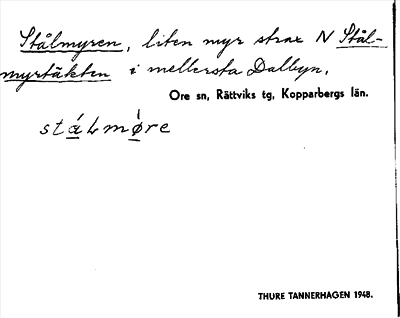 Stålmyren, liten myr strax N Stål-
myrtäkten i mellersta Dalbyn.
Ore sn, Rättviks tg, Kopparbergs län.
stálmø̀re
THURE TANNERHAGEN 1948.